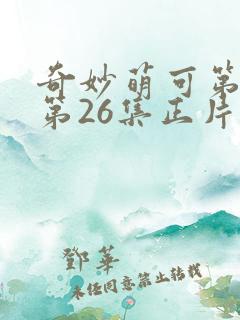 奇妙萌可第
第26集正片
鄧華
未经同意禁止转载